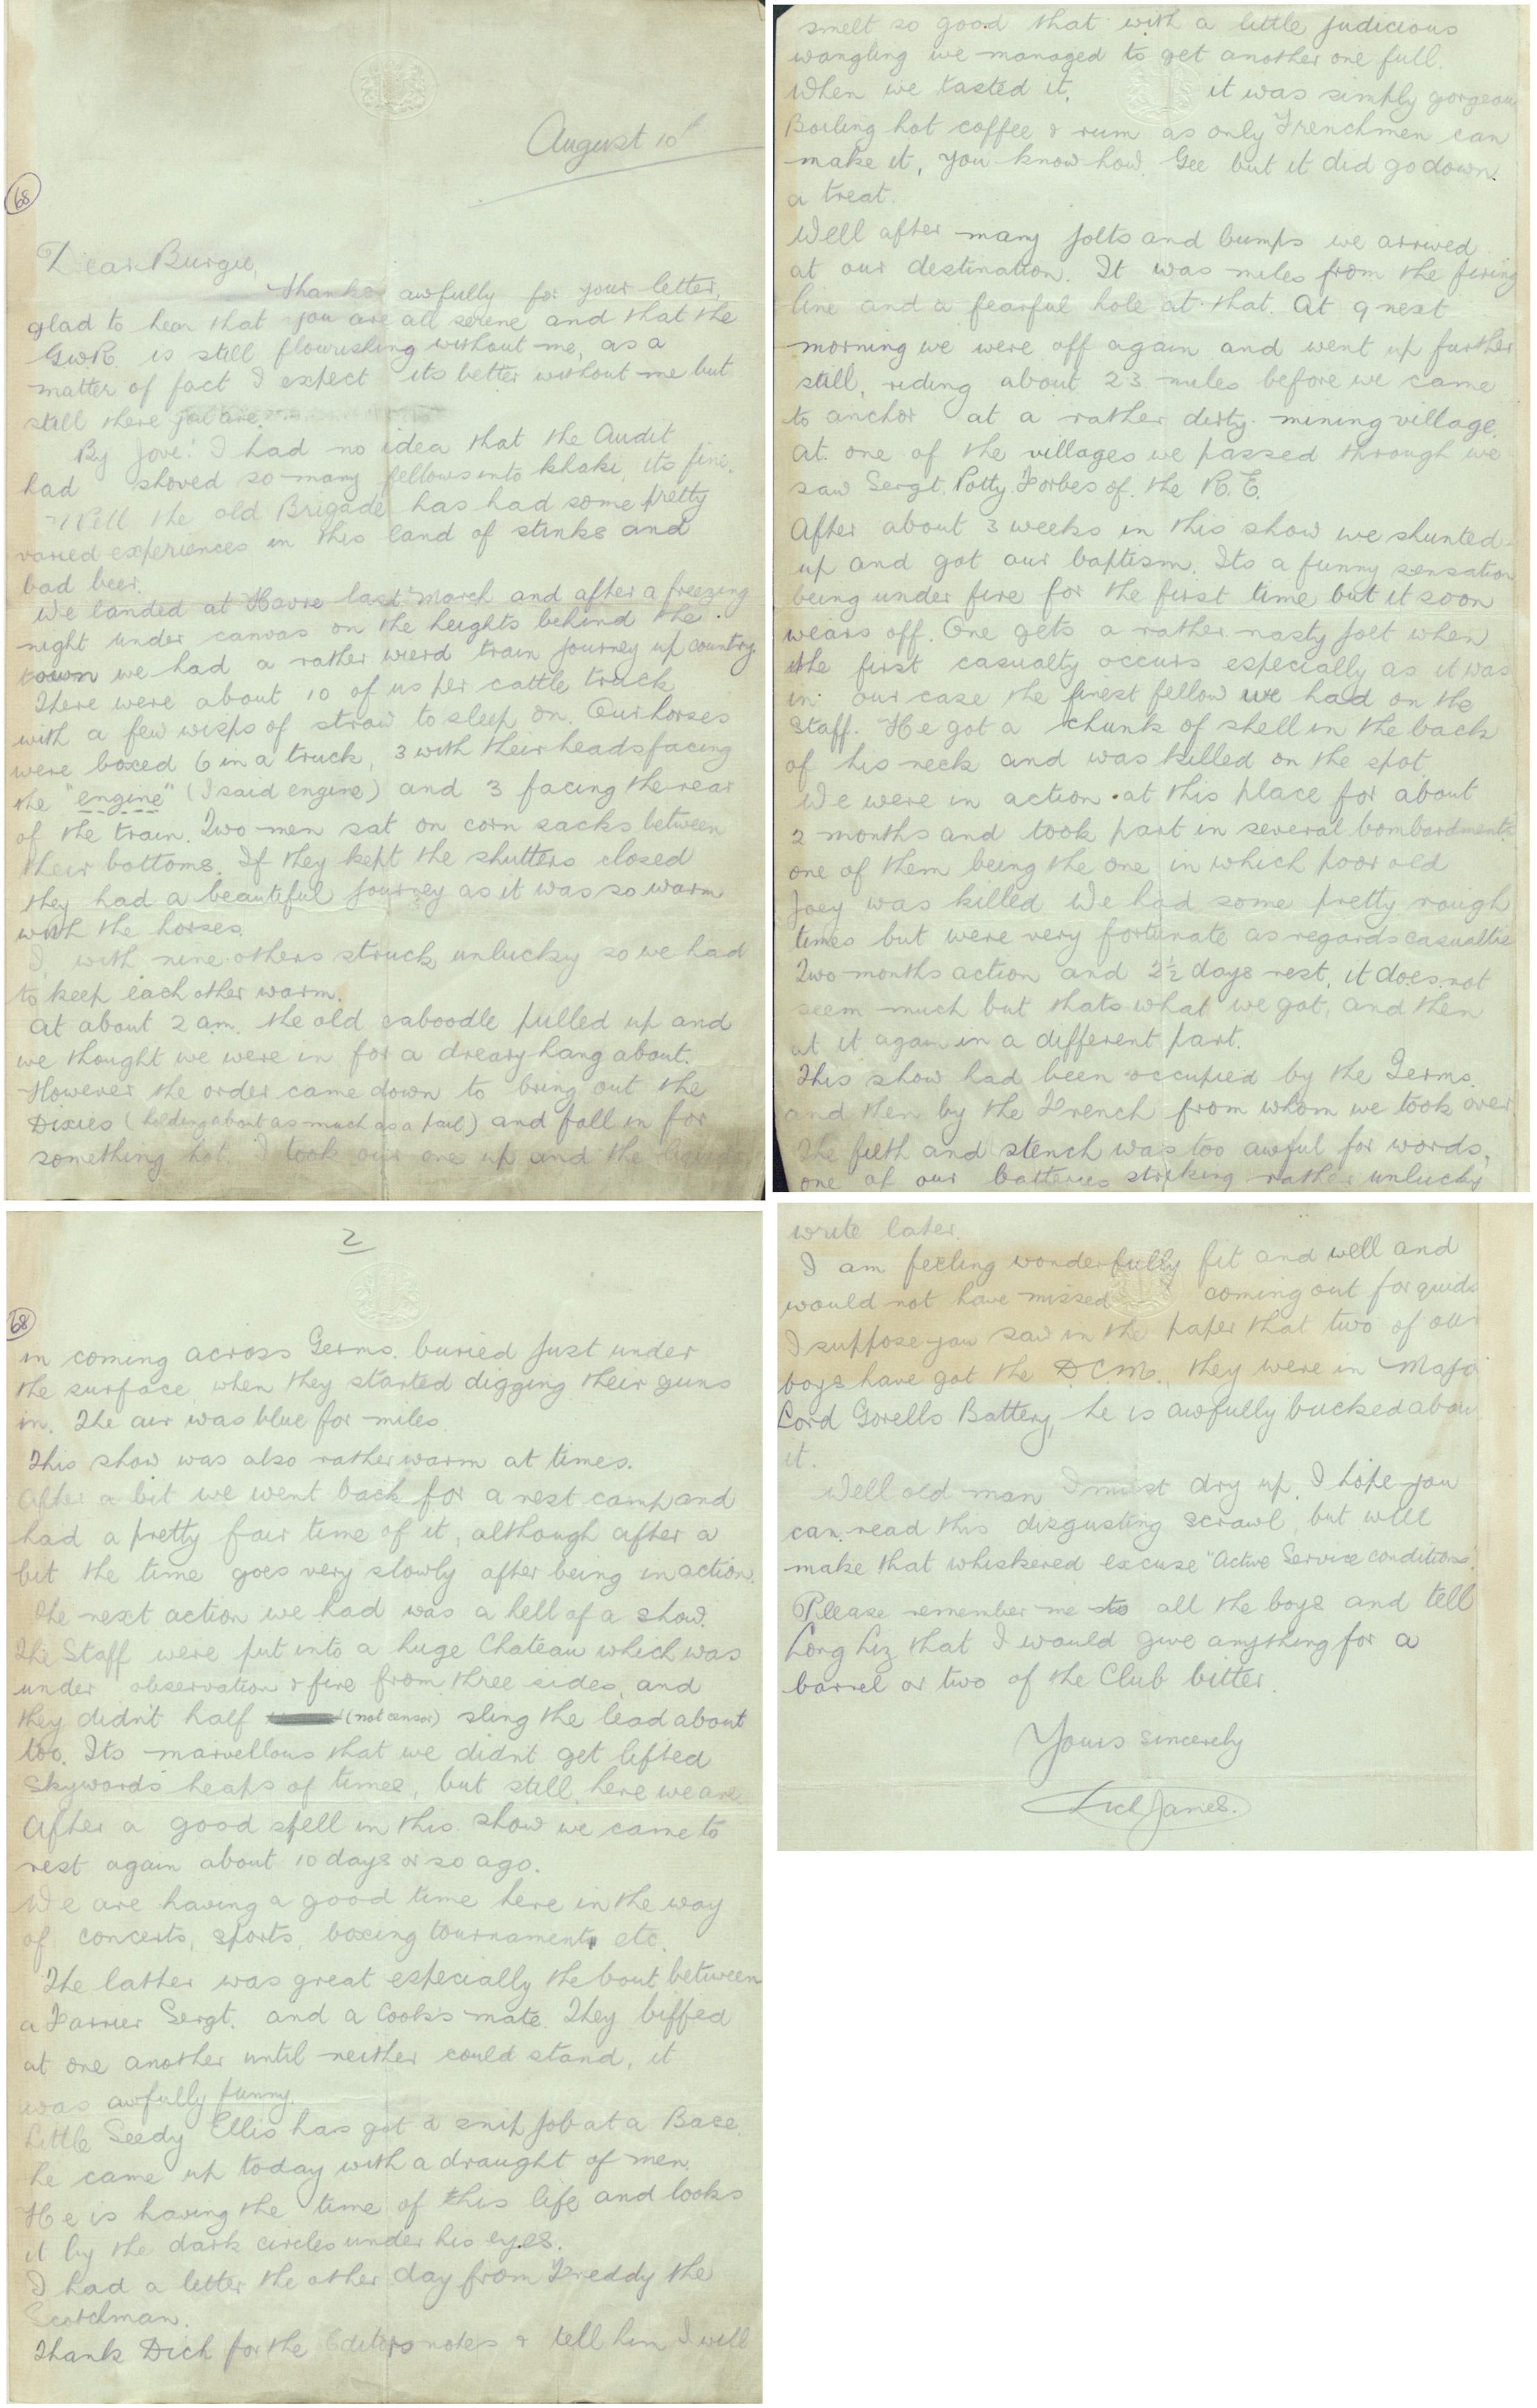 August 10th
68
Dear Burgie,
Thanks awfully for your letter,
glad to hear that you are all serene and that the
G.W.R. is still flourishing without me, as a
matter of fact I expect its better without me but
still there you are.
By Jove! I had no idea that the Audit
had shoved so many fellows into khaki, its fine.
Well the old Brigade has had some pretty
varied experiences in this land of stinks and
bad beer.
We landed at Havre last March and after a freezing
night under canvas on the heights behind the
town we had a rather wierd train journey up country.
There were about 10 of us per cattle truck
with a few wisps of straw to sleep on. Our horses
were boxed 6 in a truck, 3 with their heads facing
the "engine" (I said engine) and 3 facing the rear
of the train. Two men sat on corn sacks between
their bottoms. If they kept the shutters closed
they had a beautiful journey as it was so warm
with the horses.
I, with nine others struck unlucky so we had
to keep each other warm.
At about 2 am. the old caboodle pulled up and
we thought we were in for a dreary hang about.
However the order came down to bring out the
Dixies (holding about as much as a pail) and fall in for
something hot. I took our one up and the liquid
smelt so good that with a little judicious
wangling we managed to get another one full.
When we tasted it, it was simply gorgeous
Boiling hot coffee & rum as only Frenchmen can
make it, you know how. Gee but it did go down
a treat.
Well after many jolts and bumps we arrived
at our destination. It was miles from the firing
line and a fearful hole at that. At 9 next
morning we were off again and went up further
still, riding about 23 miles before we came
to anchor at a rather dirty mining village.
At one of the villages we passed through we
saw Sergt. Potty Forbes of the R.E.
After about 3 weeks in this show we shunted
up and got our baptism. Its a funny sensation
being under fire for the first time but it soon
wears off. One gets a rather nasty jolt when
the first casualty occurs especially as it was
in our case the finest fellow we had on the
Staff. He got a chunk of shell in the back
of his neck and was killed on the spot.
We were in action at this place for about
2 months and took part in several bombardments
one of them being the one in which poor old
Joey was killed We had some pretty rough
times but were very fortunate as regards casualties
Two months action and 2½ days rest, it does not
seem much but thats what we got, and then
at it again in a different part.
This show had been occupied by the Germs.
and then by the French from whom we took over
The filth and stench was too awful for words,
one of our batteries striking rather unlucky
2
68
in coming across Germs. buried just under
the surface when they started digging their guns
in. The air was blue for miles.
This show was also rather warm at times.
After a bit we went back for a rest camp and
had a pretty fair time of it, although after a
bit the time goes very slowly after being in action.
The next action we had was a hell of a show.
The Staff were put into a huge Chateau which was
under observation & fire from three sides, and
they didn't half (not censor) sling the lead about
too. Its marvellous that we didn't get lifted
skywards heaps of times, but still, here we are
After a good spell in this show we came to
rest again about 10 days or so ago.
We are having a good time here in the way
of concerts, sports, boxing tournaments etc.
The latter was great especially the bout between
a Farrier Sergt. and a Cook's mate. They biffed
at one another until neither could stand, it
was awfully funny.
Little Seedy Ellis has got a snip job at a Base.
he came up today with a draught of men.
He is having the time of his life and looks
it by the dark circles under his eyes.
I had a letter the other day from Freddy the
Scotchman.
Thank Dick for the Editors notes & tell him I will
write later.
I am feeling wonderfully fit and well and
would not have missed coming out for quids
I suppose you saw in the paper that two of our
boys have got the D.C.M., they were in Major
Lord Gorells Battery, he is awfully bucked about
it.
Well old man I must dry up. I hope you
can read this disgusting scrawl, but will
make that whiskered excuse "Active Service conditions".
Please remember me to all the boys and tell
Long Liz that I would give anything for a
barrel or two of the Club bitter.
Yours sincerely
Dick James.